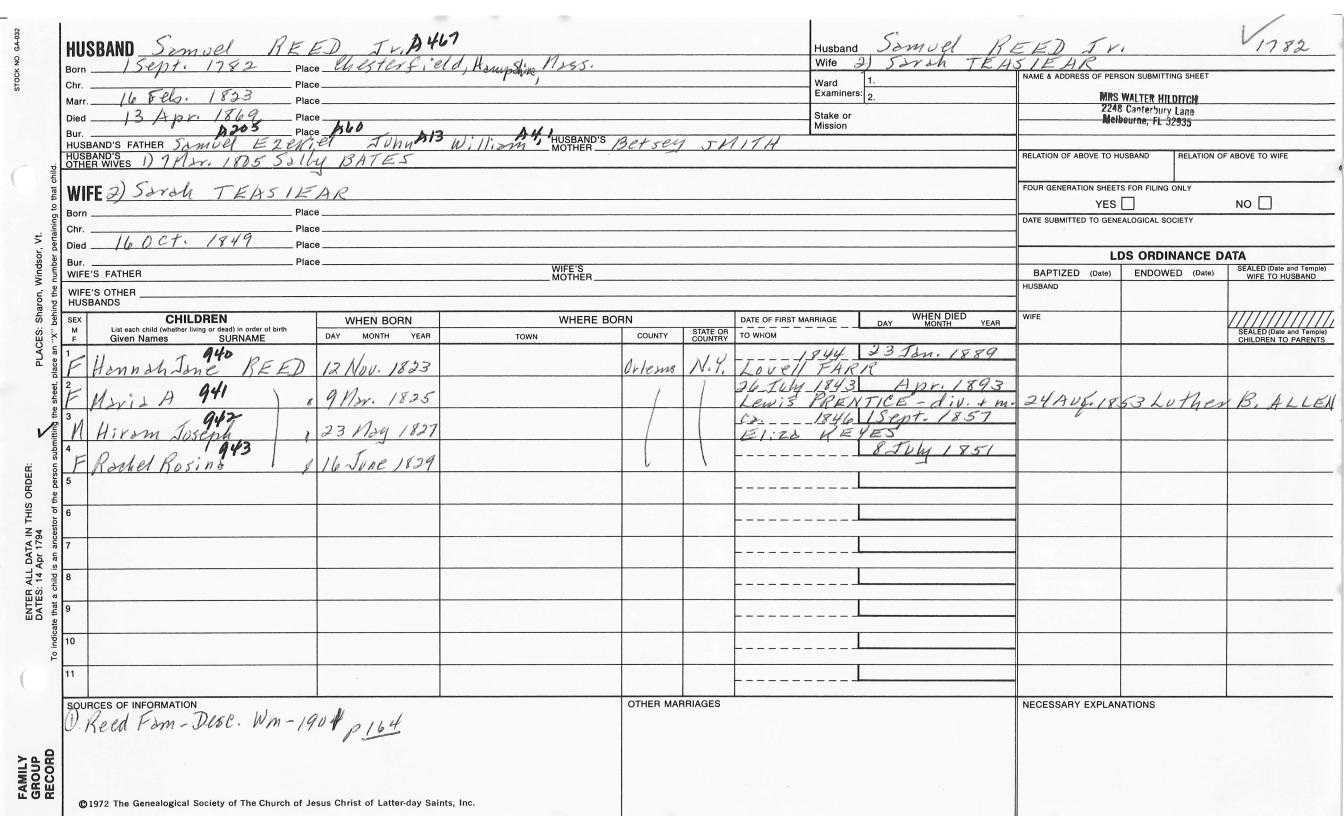 STOCK NO. GA-032
HUSBAND Samuel REED Jr. A467
Born 1 Sept. 1782 Place Chesterfield, Hampshire, Mass.
Chr. Place
Marr. 16 Feb. 1823 Place
Died 13 Apr. 1869 Place
Bur. Place
A205 A60 A13 A4,
HUSBAND'S FATHER Samuel Ezekiel John William HUSBAND'S MOTHER Betsey SMITH
HUSBAND'S OTHER WIVES 1) 7 Mar. 1805 Sally BATES
WIFE 2) Sarah TEASIEAR
Born Place
Chr. Place
Died 16 Oct. 1849 Place
Bur. Place
WIFE'S FATHER WIFE'S MOTHER
WIFE'S OTHER HUSBANDS
Husband Samuel REED Jr. 1782
Wife 2) Sarah TEASIEAR
Ward Examiners: 1.
2.
Stake or Mission
NAME & ADDRESS OF PERSON SUBMITTING SHEET
MRS WALTER HILDITCH
2248 Canterbury Lane
Melbourne, FL 32935
RELATION OF ABOVE TO HUSBAND RELATION OF ABOVE TO WIFE
FOUR GENERATION SHEETS FOR FILING ONLY
YES NO
DATE SUBMITTED TO GENEALOGICAL SOCIETY
LDS ORDINANCE DATA
BAPTIZED (Date) ENDOWED (Date) SEALED (Date and Temple) WIFE TO HUSBAND
HUSBAND
WIFE
SEALED (Date and Temple) CHILDREN TO PARENTS
SEX M F
CHILDREN
List each child (whether living or dead) in order of birth
Given Names SURNAME
WHEN BORN
DAY MONTH YEAR
WHERE BORN
TOWN COUNTY STATE OR COUNTRY
DATE OF FIRST MARRIAGE
TO WHOM
WHEN DIED
DAY MONTH YEAR
1 F Hannah Jane 940 REED 12 Nov. 1823 Orleans N.Y. 1844 23 Jan. 1889
Lovell FARR
2 F Maria A 941 " 9 Mar. 1825 26 July 1843 Apr. 1893
Lewis PRENTICE - div. + m. 24 Aug. 1853 Luther B. ALLEN
3 M Hiram Joseph 942 " 23 May 1827 ca. 1846 1 Sept. 1857
Eliza KEYES
4 F Rachel Rosina 943 " 16 June 1829 8 July 1851
5
6
7
8
9
10
11
SOURCES OF INFORMATION
1) Reed Fam - Desc. Wm - 1901 p 164
OTHER MARRIAGES
NECESSARY EXPLANATIONS
©1972 The Genealogical Society of The Church of Jesus Christ of Latter-day Saints, Inc.
FAMILY GROUP RECORD
ENTER ALL DATA IN THIS ORDER:
DATES: 14 Apr 1794 PLACES: Sharon, Windsor, Vt.
To indicate that a child is an ancestor of the person submitting the sheet, place an "X" behind the number pertaining to that child.